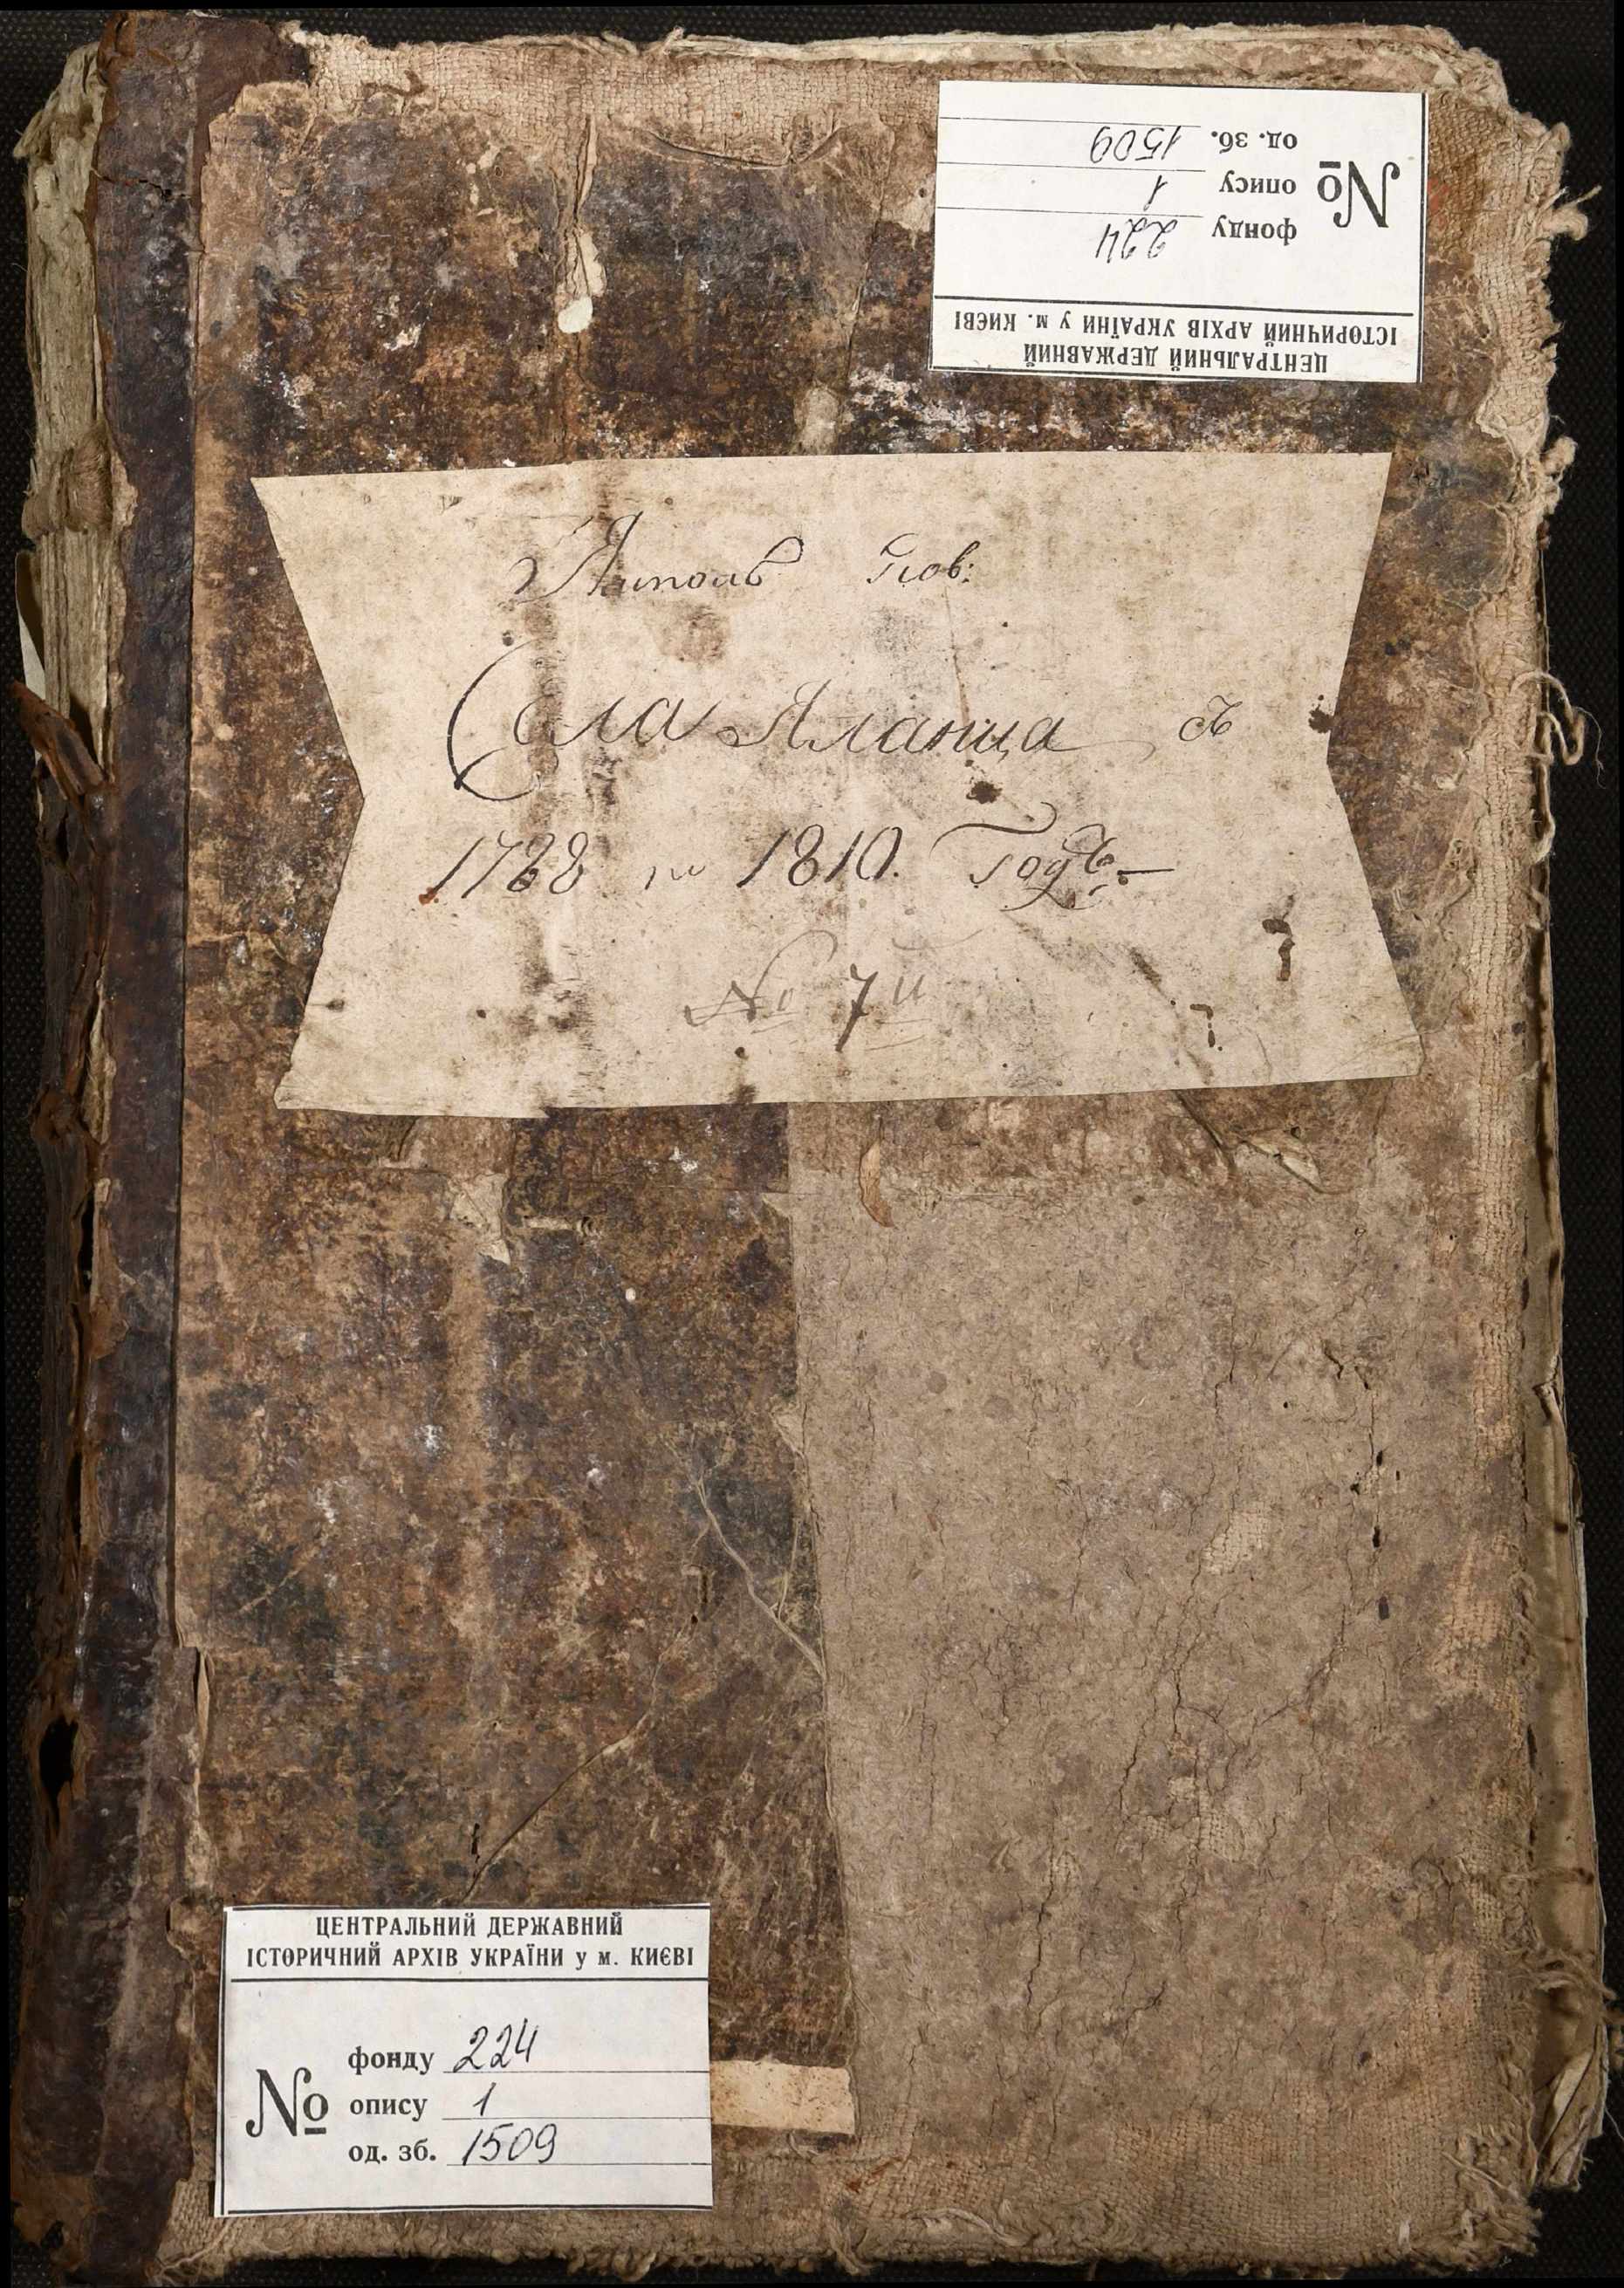 ЦЕНТРАЛЬНИЙ ДЕРЖАВНИЙ
ІСТОРИЧНИЙ АРХІВ УКРАЇНИ у м. КИЄВІ
№
фонду 224
опису 1
од. зб. 1509
Села Яланца съ
по 1810. Годъ
№ 7й
ЦЕНТРАЛЬНИЙ ДЕРЖАВНИЙ
ІСТОРИЧНИЙ АРХІВ УКРАЇНИ у м. КИЄВІ
№
фонду 224
опису 1
од. зб. 1509